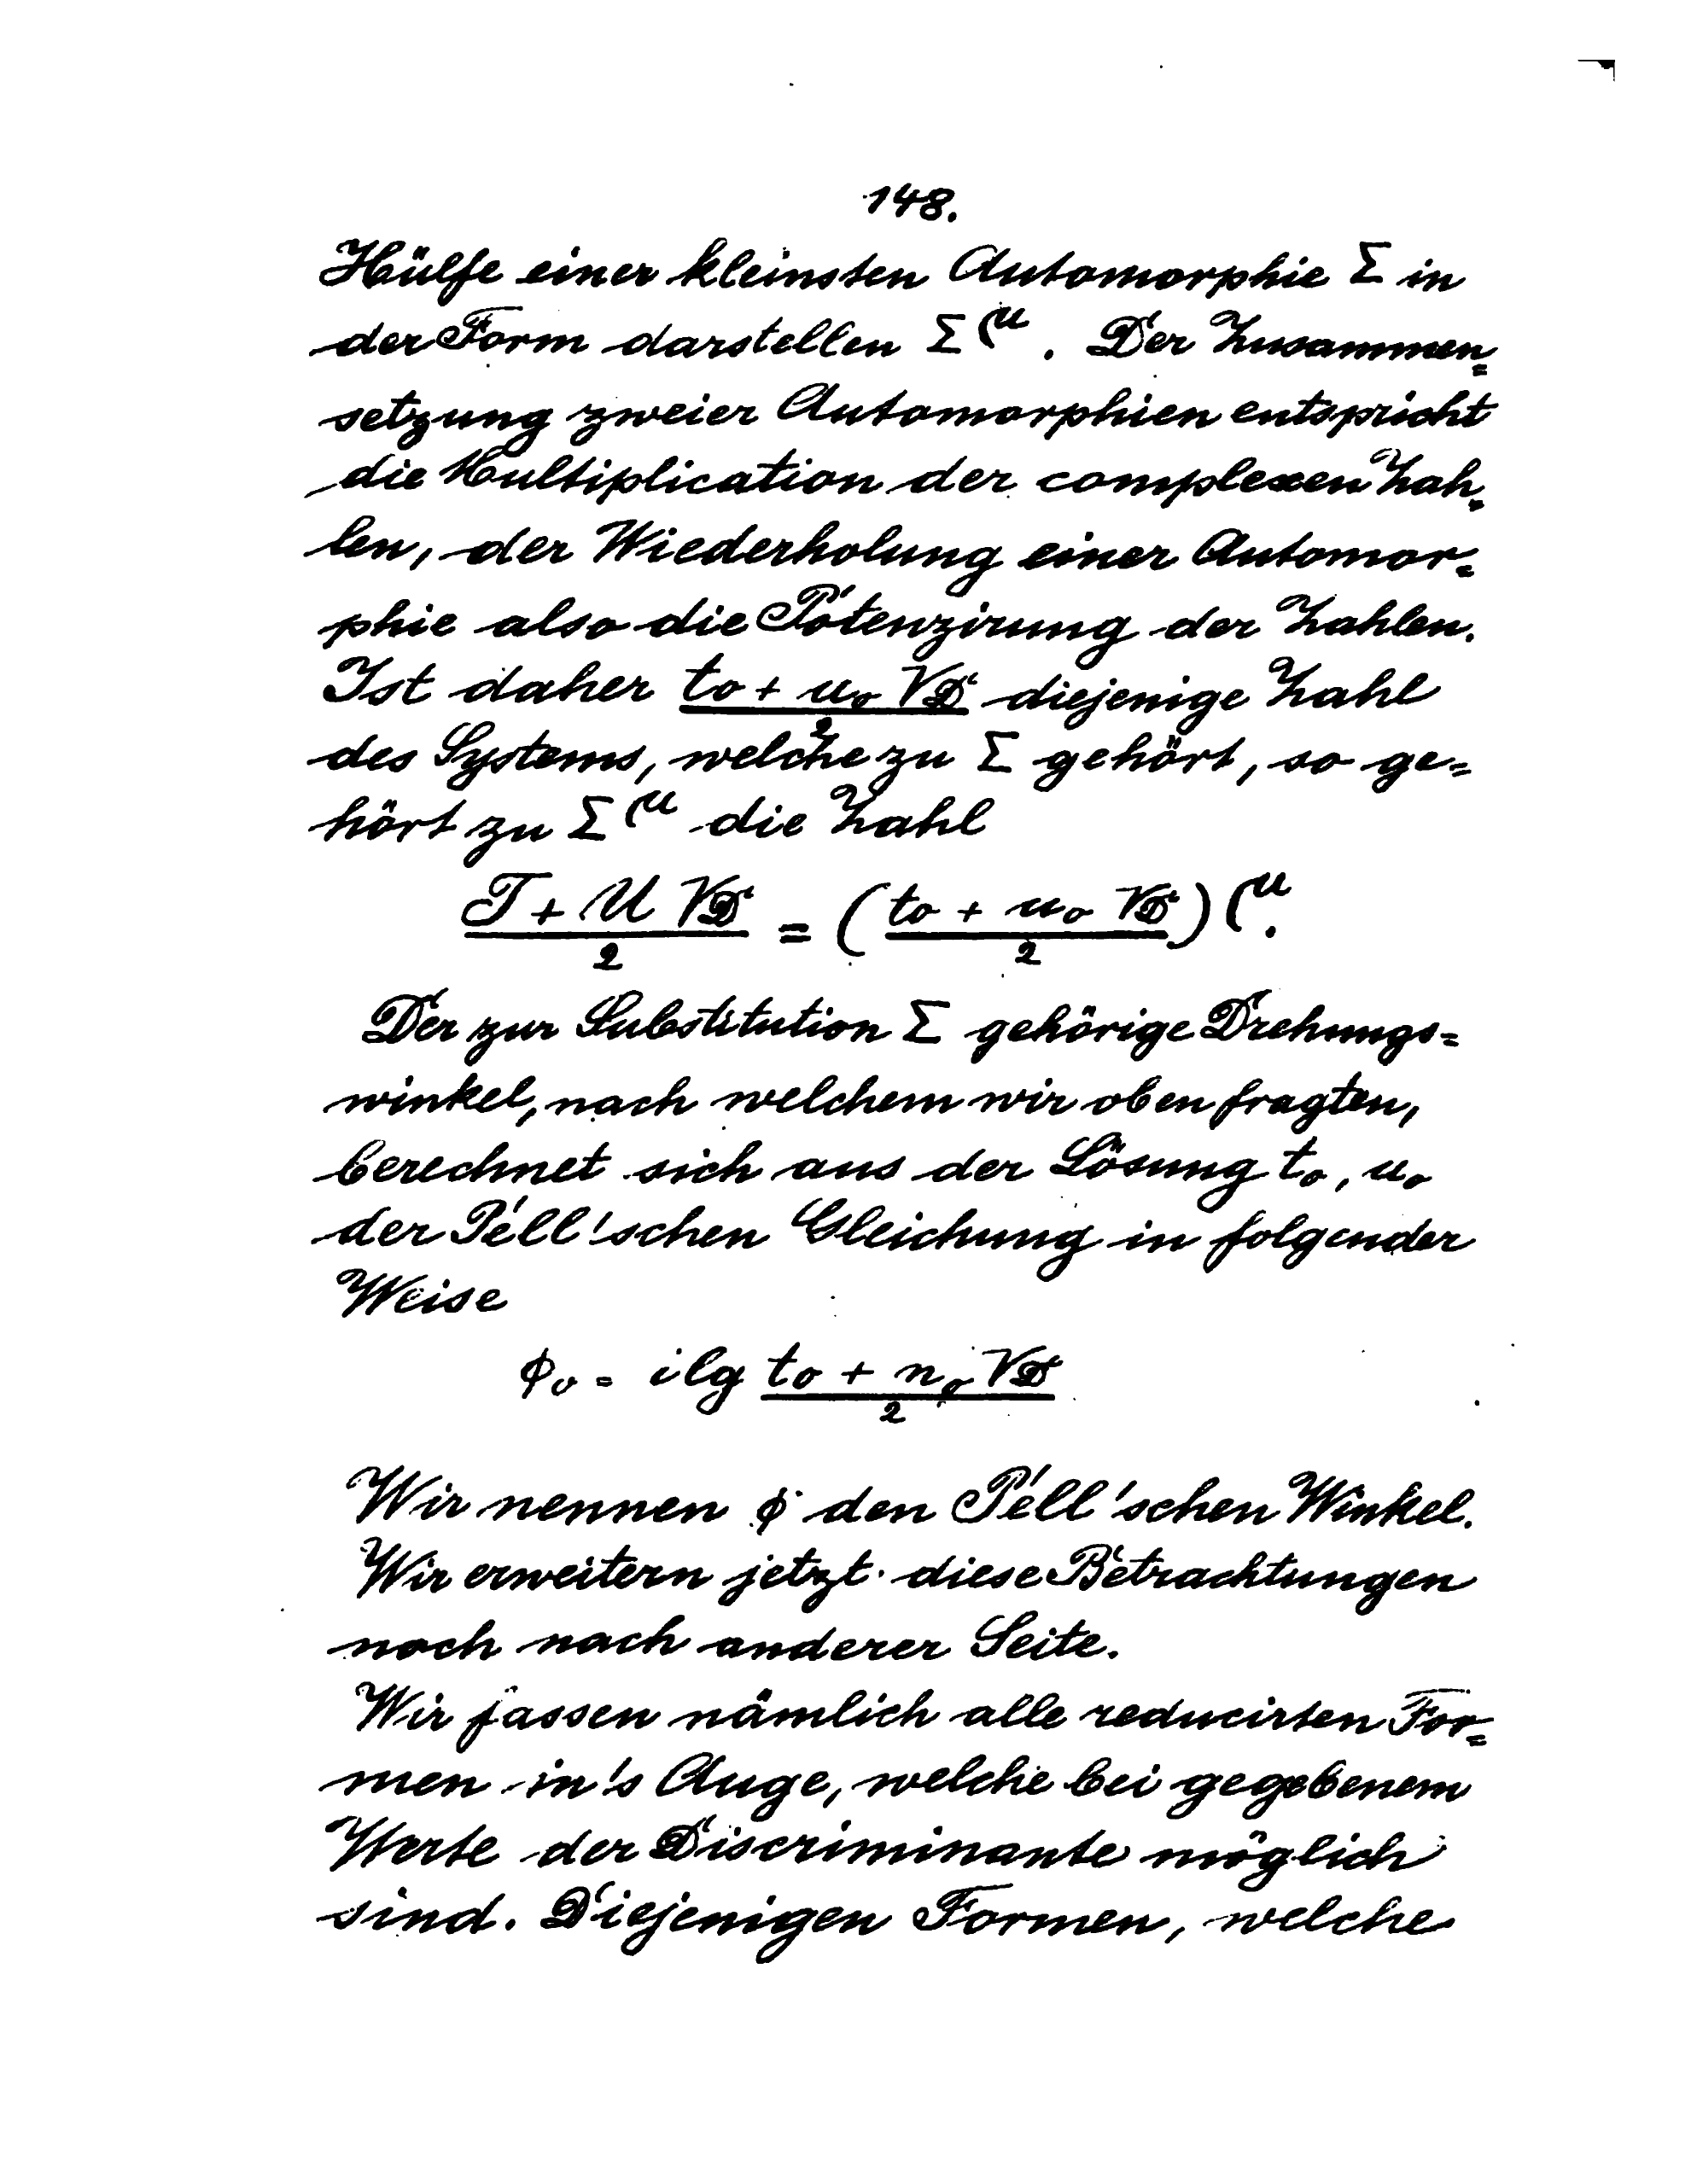 148.
Hülfe einer kleinsten Automorphie Σ in
der Form darstellen Σ^μ. Der Zusammen=
setzung zweier Automorphien entspricht
die Multiplication der complexen Zah=
len, der Wiederholung einer Automor=
phie also die Potenzirung der Zahlen.
Ist daher (t₀ + u₀ √D)/2 diejenige Zahl
des Systems, welche zu Σ gehört, so ge=
hört zu Σ^μ die Zahl
(T + U √D)/2 = ((t₀ + u₀ √D)/2)^μ.
Der zur Substitution Σ gehörige Drehungs=
winkel, nach welchem wir oben fragten,
berechnet sich aus der Lösung t₀, u₀
der Pell'schen Gleichung in folgender
Weise
ϕ₀ = i lg (t₀ + n₀ √D)/2
Wir nennen ϕ den Pell'schen Winkel.
Wir erweitern jetzt diese Betrachtungen
noch nach anderer Seite.
Wir fassen nämlich alle reducirten For=
men in's Auge, welche bei gegebenem
Werte der Discriminante möglich
sind. Diejenigen Formen, welche